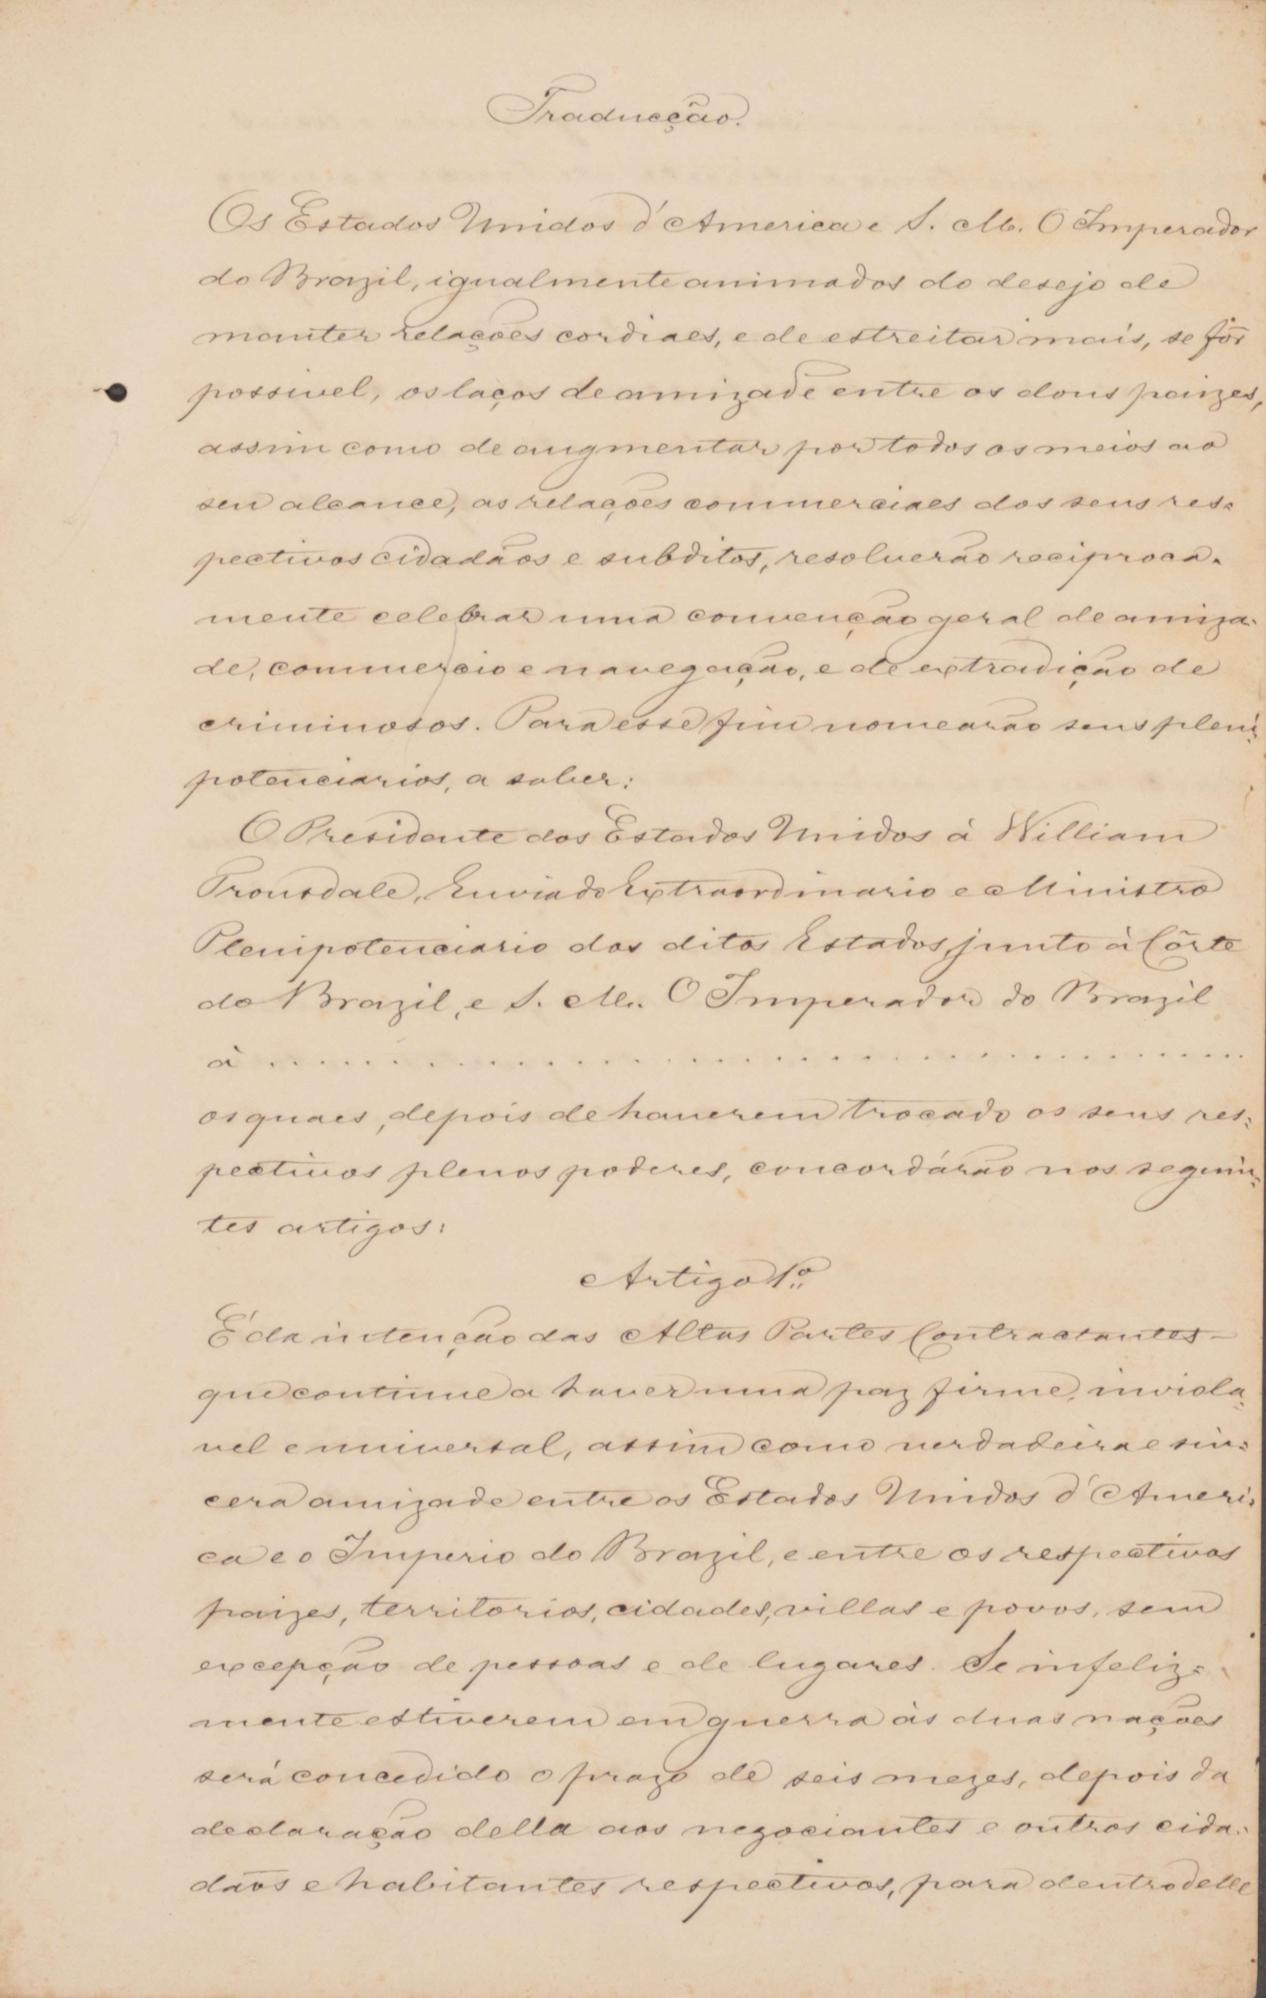 Traducção.
Os Estados Unidos d'America e S. M. O Imperador
do Brazil, igualmente animados do desejo de
manter relações cordiaes, e de estreitar mais, se fôr
possivel, os laços de amizade entre os dous paizes,
assim como de augmentar por todos os meios ao
seu alcance, as relações commerciaes dos seus res=
pectivos cidadãos e subditos, resolverão reciproca=
mente celebrar uma convenção geral de amiza=
de, commercio e navegação, e de extradição de
criminosos. Para esse fim nomearão seus pleni=
potenciarios, a saber:
O Presidente dos Estados Unidos à William
Trousdale, Enviado Extraordinario e Ministro
Plenipotenciario dos ditos Estados junto à Côrte
do Brazil, e S. M. O Imperador do Brazil
à . . . . . . . . . . . . . . . . . . . . . . . . . . . . . .
os quaes, depois de haverem trocado os seus res=
pectivos plenos poderes, concordárão nos seguin=
tes artigos:
Artigo 1º
É da intenção das Altas Partes Contractantes
que continue a haver uma paz firme, inviola=
vel e universal, assim como verdadeira e sin=
cera amizade entre os Estados Unidos d'Ameri=
ca e o Imperio do Brazil, e entre os respectivos
paizes, territorios, cidades, villas e povos, sem
excepção de pessoas e de lugares. Se infeliz=
mente estiverem em guerra às duas nações
será concedido o prazo de seis mezes, depois da
declaração della aos negociantes e outros cida=
dãos e habitantes respectivos, para dentro delle